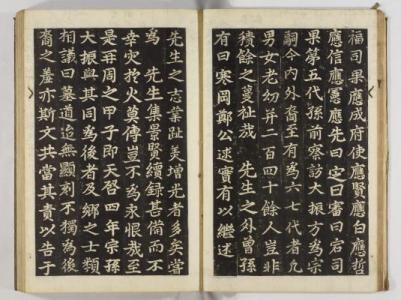 福司果應成府使應賢應白應哲
應信應憲應先曰宏曰審曰宕司
果第五代孫前察訪大振方爲宗
嗣今内外裔至有爲六七代者九
男女老幼幷二百四十餘人豈非
積餘之蔓祉哉　先生之外曾孫
有曰寒岡鄭公逑實有以繼述
先生之志業趾美增光者多矣嘗
爲　先生集景賢續錄甚備而不
幸灾於火莫傳豈不爲永恨哉至
是再周之甲子卽天啓四年宗孫
大振與其同爲後者及鄕之士類
相議曰墓道迨無顯刻不獨爲後
裔之羞亦斯文共當其責以告于